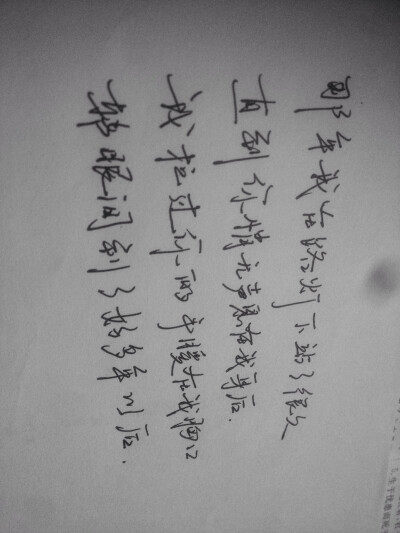 那年我在路灯下站了很久
直到你悄无声息在我身后.
我拉过你的手暖在我胸口
转眼间到了好多年以后.